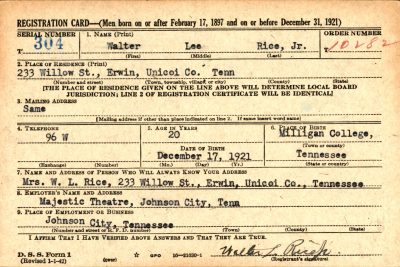 REGISTRATION CARD—(Men born on or after February 17, 1897 and on or before December 31, 1921)
SERIAL NUMBER 1. NAME (Print) ORDER NUMBER
304 Walter Lee Rice, Jr. 10282
(First) (Middle) (Last)
2. PLACE OF RESIDENCE (Print)
233 Willow St., Erwin, Unicoi Co. Tenn
(Number and street) (Town, township, village or city) (County) (State)
[THE PLACE OF RESIDENCE GIVEN ON THE LINE ABOVE WILL DETERMINE LOCAL BOARD
JURISDICTION; LINE 2 OF REGISTRATION CERTIFICATE WILL BE IDENTICAL]
3. MAILING ADDRESS
Same
[Mailing address if other than place indicated on line 2. If same insert word same]
4. TELEPHONE 5. AGE IN YEARS 6. PLACE OF BIRTH
96 W 20 Milligan College,
DATE OF BIRTH (Town or county)
December 17, 1921 Tennessee
(Exchange) (Number) (Mo.) (Day) (Yr.) (State or country)
7. NAME AND ADDRESS OF PERSON WHO WILL ALWAYS KNOW YOUR ADDRESS
Mrs. W. L. Rice, 233 Willow St., Erwin, Unicoi Co., Tennessee
8. EMPLOYER'S NAME AND ADDRESS
Majestic Theatre, Johnson City, Tenn
9. PLACE OF EMPLOYMENT OR BUSINESS
Johnson City, Tennessee
(Number and street or R. F. D. number) (Town) (County) (State)
I AFFIRM THAT I HAVE VERIFIED ABOVE ANSWERS AND THAT THEY ARE TRUE.
D. S. S. Form 1 GPO 16—21630-1 Walter L. Rice Jr.
(Revised 1-1-42) (over) (Registrant's signature)